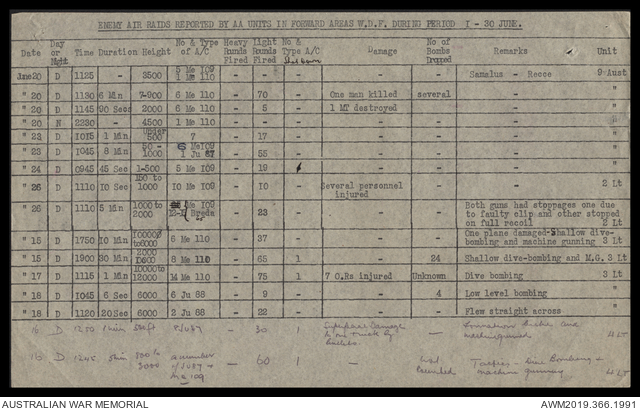 ENEMY AIR RAIDS REPORTED BY AA UNITS IN FORWARD AREAS W.D.F. DURING PERIOD I - 30 JUNE.
Date Day or Night Time Duration Height No & Type of A/C Heavy Rounds Fired Light Rounds Fired No & Type A/C Damage No of Bombs Dropped Remarks Unit
June20 D 1125 - 3500 5 Me I09 1 Me 110 - - - - Samalus - Recce 9 Aust
" 20 D 1130 6 Min 7-900 6 Me 110 - 70 - One man killed several -
" 20 D 1145 90 Secs 2000 6 Me 110 - 5 - 1 MT destroyed - -
" 20 N 2230 - 4500 1 Me 110 - - - - - -
" 23 D I0I5 1 Min Under 500 7 - 17 - - - -
" 23 D I045 8 Min 50 - 1000 6 Me I09 1 Ju 87 - 55 - - - -
" 24 D 0945 45 Sec 1-500 5 Me I09 - 19 - - -
" 26 D 1110 10 Sec 150 to 1000 I0 Me I09 - I0 - Several personnel injured - - 2 Lt
" 26 D 1110 5 Min 1000 to 2000 Me I09 Breda - 23 - - - Both guns had stoppages one due
to faulty clip and other stopped
on full recoil 2 Lt
" I5 D 1750 I0 Min to6000 6 Me 110 - 37 - - - One plane damaged-Shallow dive-
bombing and machine gunning 3 Lt
" I5 D 1900 30 Min 2000 8 Me 110 - 65 1 - 24 Shallow dive-bombing and M.G. 3 Lt
" I7 D 1115 1 Min I0000 to 12000 14 Me 110 - 75 1 7 O.Rs injured Unknown Dive bombing 3 Lt
" I8 D I045 6 Sec 6000 6 Ju 88 - 9 - - 4 Low level bombing
" I8 D 1120 20Sec 6000 2 Ju 88 - 22 - - - Flew straight across "
16 D 1250 1 min 8/Ju87 - 30 1 Superficial Damage to one truck by bullets - and machine gunned 4 Lt
16 D 1245 5 min 500 to 3000 a number of Ju87 + Me 109 - 60 1 Not Counted Tactics - Dive Bombing + machine gunning 4 LT
AUSTRALIAN WAR MEMORIAL
AWM2019.366.1991